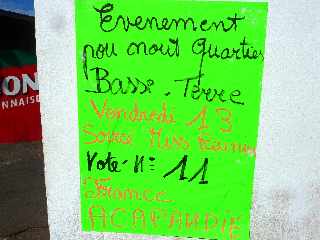 Evenement
pou nout Quartier
Basse-Terre
Vendrodi 13
Soirée Miss
Vote N° 11
France
ACAPANDIE
ON
NNAIS